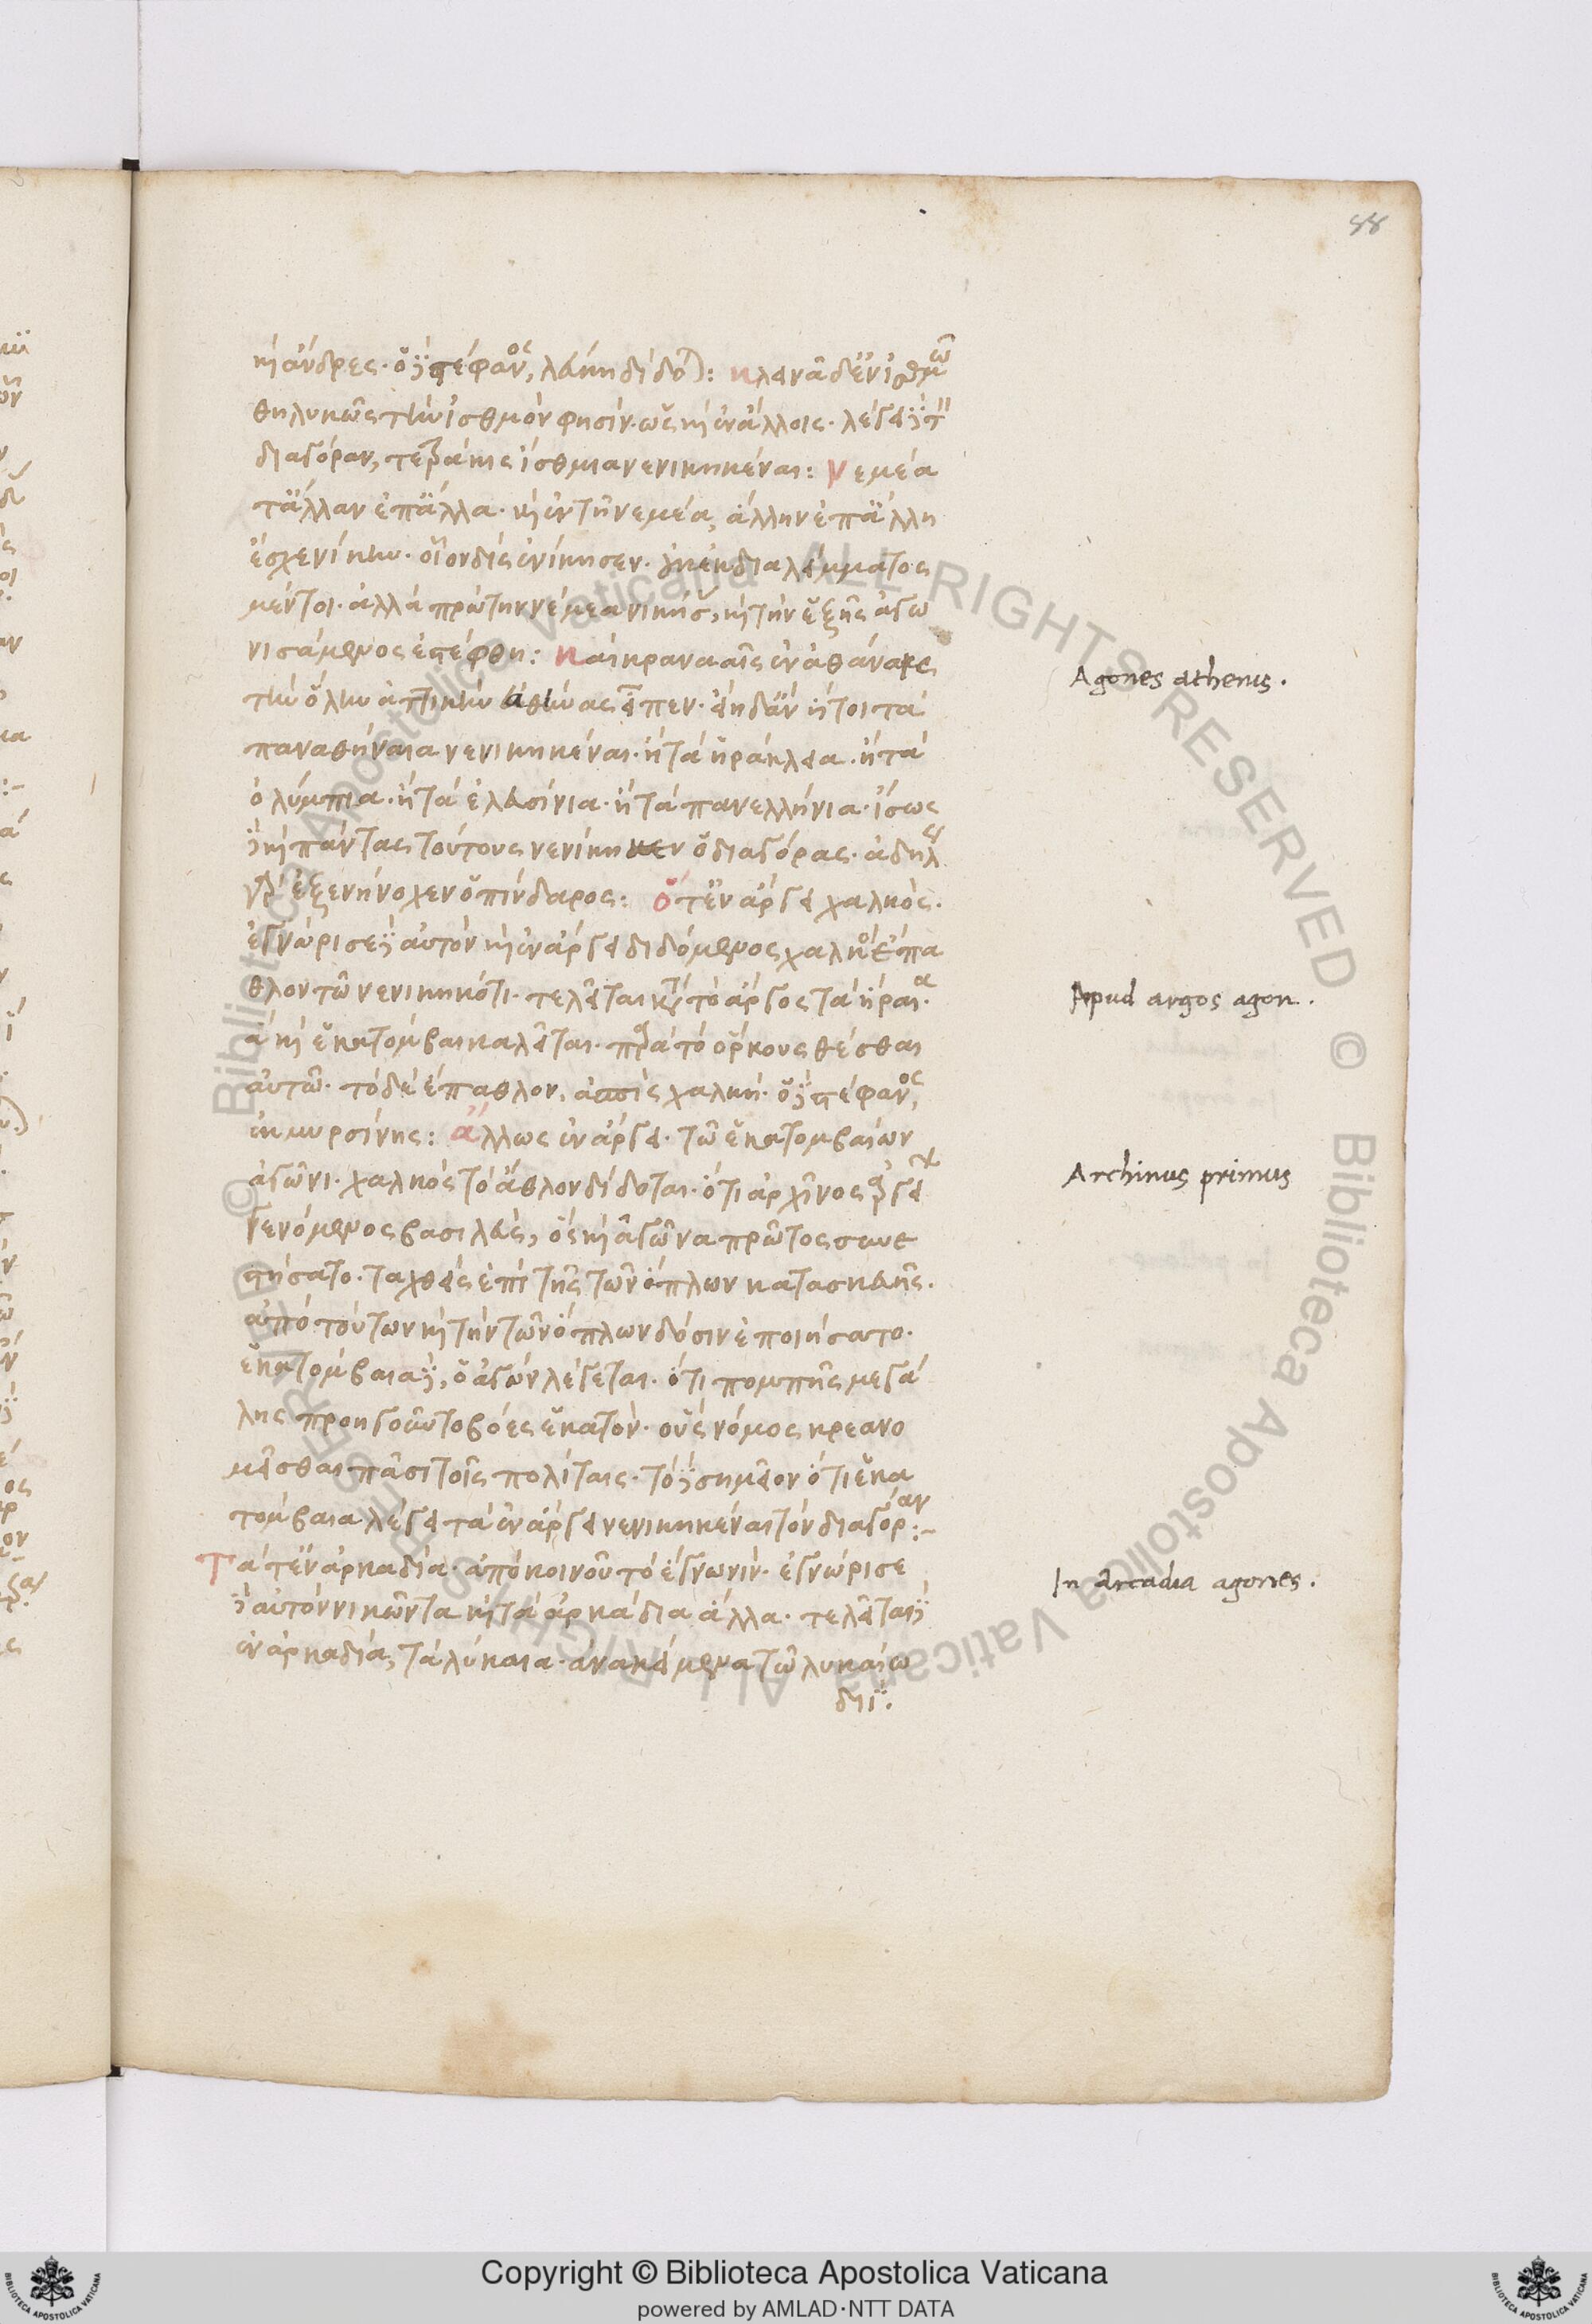 88
καὶ ἄνδρες· ὁ δὲ στέφανος, λεύκη δίδοται: κλεινᾷ δ' ἐν ἰσθμῷ
θηλυκῶς τὴν ἰσθμόν φησιν· ὡς καὶ ἐν ἄλλοις· λέγει δὲ τὸν
διαγόραν, τετράκις ἴσθμια νενικηκέναι: Νεμέα
τ' ἄλλαν ἐπ' ἄλλα· καὶ ἐν τῇ νεμέα, ἄλλην ἐπ' ἄλλη
ἔσχε νίκην· οἷον δὶς ἐνίκησεν· οὐκ ἐκ διαλείμματος
μέντοι· ἀλλὰ πρώτην νέμεα νικήσας, καὶ τὴν ἑξῆς ἀγω
νισάμενος ἐστέφθη: Καὶ κρανααῖς ἐν ἀθάναις
τὴν ὅλην ἀττικὴν ἀθήνας εἶπεν· εἴη δ' ἂν ἤτοι τὰ
παναθήναια νενικηκέναι· ἢ τὰ ἡράκλεια· ἢ τὰ
ὀλύμπια· ἢ τὰ ἐλευσίνια· ἢ τὰ πανελλήνια· ἴσως
δὲ καὶ πάντας τούτους νενίκηκεν ὁ διαγόρας· ἀδήλως
γὰρ ἐξενήνοχεν ὁ πίνδαρος: Ὅ τ' ἐν ἄργει χαλκός·
ἐγνώρισε δὲ αὐτὸν καὶ ἐν ἄργει διδόμενος χαλκὸς ἔπα
θλον τῷ νενικηκότι· τελεῖται κατὰ τὸ ἄργος τὰ ἥραια·
ἃ καὶ ἑκατόμβαι καλεῖται· παρὰ τὸ ὅρκους θέσθαι
αὐτῶ· τὸ δὲ ἔπαθλον, ἀσπὶς χαλκῆ· ὁ δὲ στέφανος,
ἐκ μυρσίνης: ἄλλως ἐν ἄργει· τῶ ἑκατομβαίων
ἀγῶνι· χαλκὸς τὸ ἆθλον δίδοται· ὅτι ἀρχῖνος ἀργείων
γενόμενος βασιλεύς, ὃς καὶ ἀγῶνα πρῶτος συνε
στήσατο· ταχθεὶς ἐπὶ τῆς τῶν ὅπλων κατασκευῆς·
ἀπὸ τούτων καὶ τὴν τῶν ὅπλων δόσιν ἐποιήσατο·
ἑκατόμβαια δὲ, ὁ ἀγὼν λέγεται· ὅτι πομπῆς μεγά
λης προηγοῦντο βόες ἑκατόν· οὓς νόμος κρεανο
μεῖσθαι πᾶσι τοῖς πολίταις· τὸ δὲ σημεῖον ὅτι ἑκα
τόμβαια λέγει τὰ ἐν ἄργει νενικηκέναι τὸν διαγόραν:–
Τά τ' ἐν ἀρκαδία· ἀπὸ κοινοῦ τὸ ἔγνω νιν· ἐγνώρισε
δὲ αὐτὸν νικῶντα καὶ τὰ ἀρκάδια ἄλλα· τελεῖται δὲ
ἐν ἀρκαδία, τὰ λύκαια· ἀνακείμενα τῷ λυκαίω
διΐ.
Agones athenis.
Apud argos agon.
Archinus primus
In Arcadia agones.
© Biblioteca Apostolica Vaticana ALL RIGHTS RESERVED © Biblioteca Apostolica Vaticana ALL RIGHTS RESERVED
Copyright © Biblioteca Apostolica Vaticana
powered by AMLAD·NTT DATA